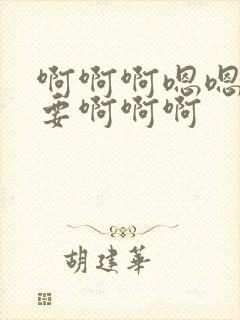 啊啊啊嗯嗯
要啊啊啊
胡建华